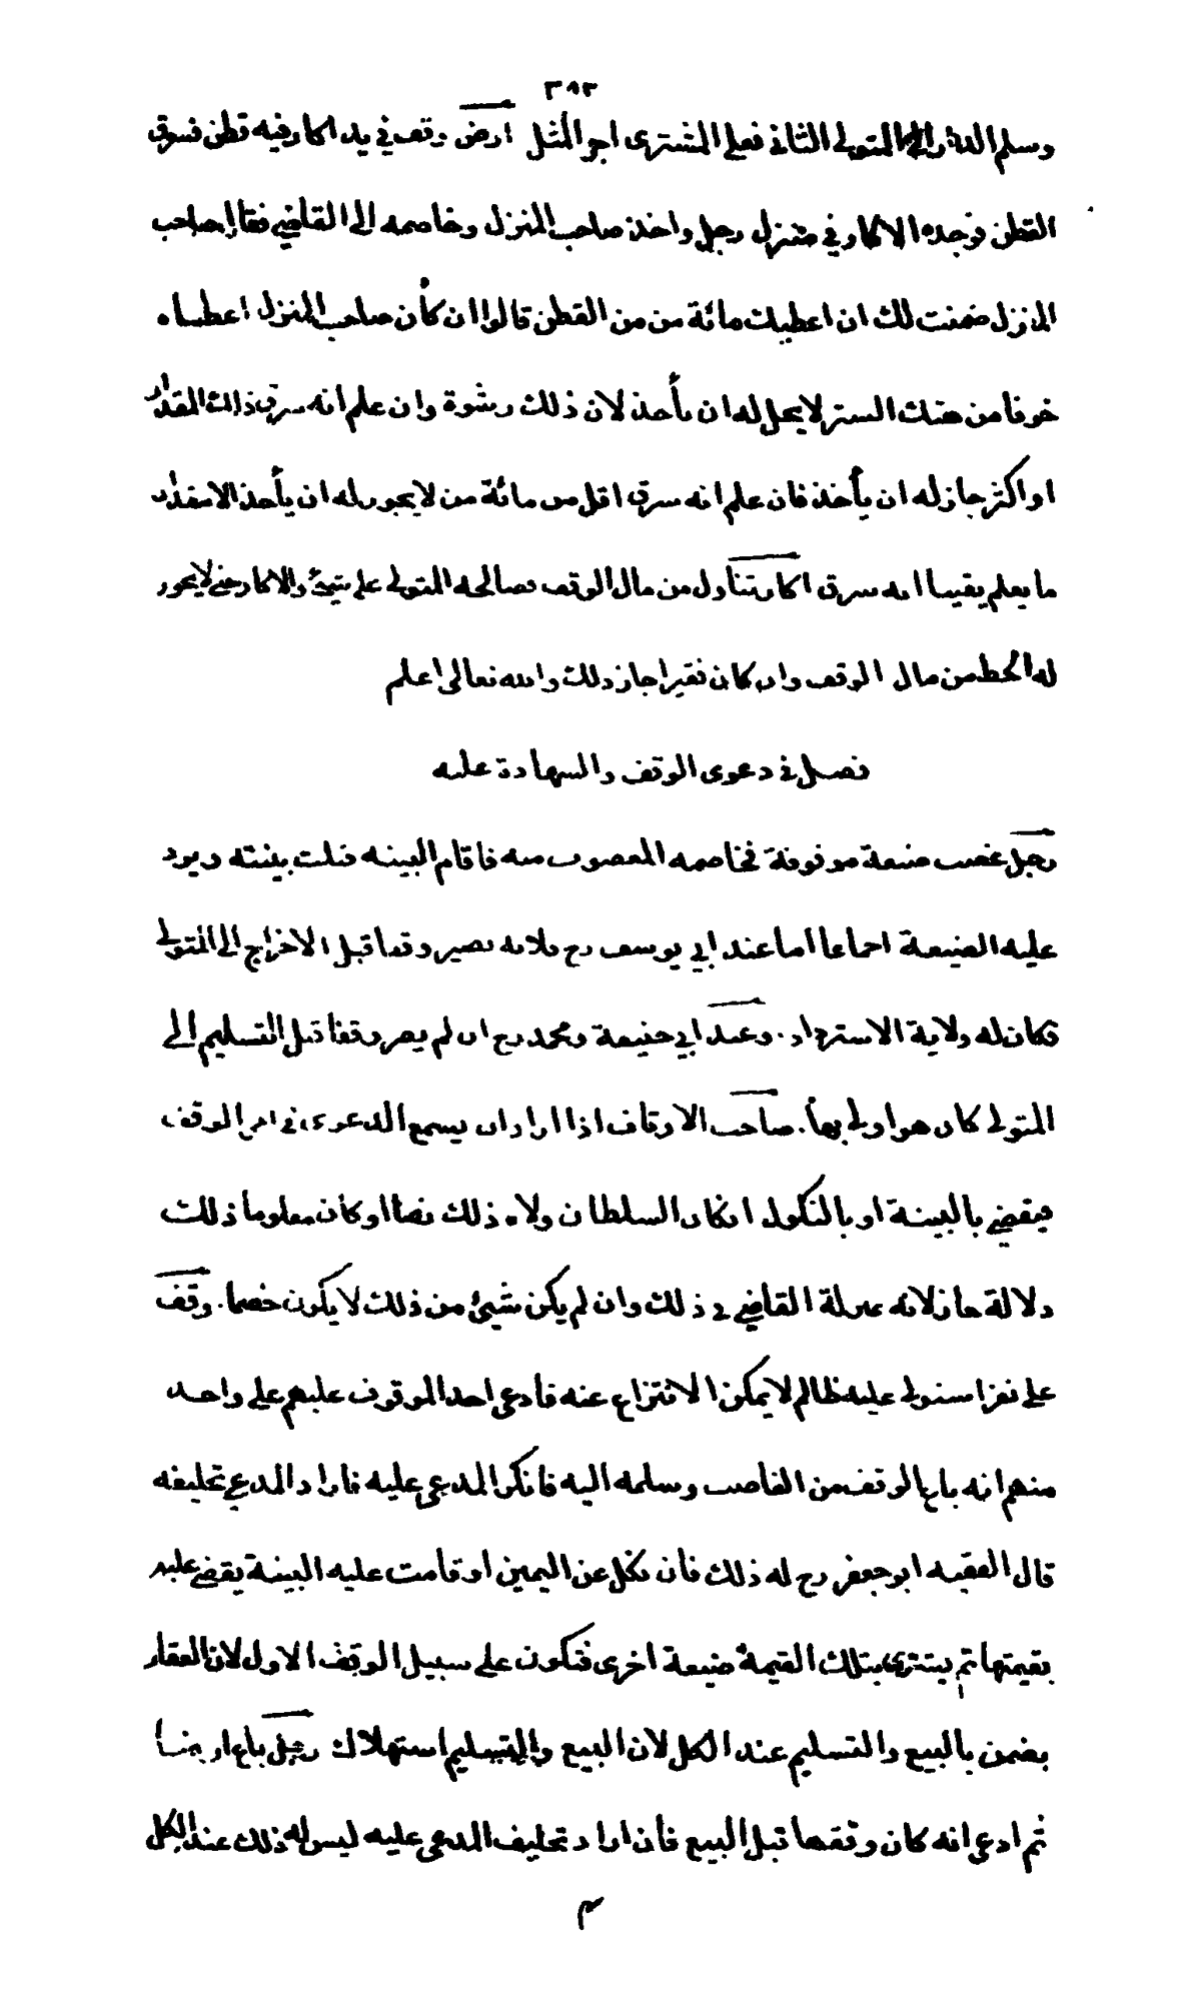 ٣٨٣
وسلم الدار الى المتولى الثانى فعلى المشترى اجر المثل ارض وقف في يد اكار وفيه قطن فسرق
القطن فوجده الاكار في منزل رجل واخذ صاحب المنزل وخاصمه الى القاضي فقال صاحب
المنزل ضمنت لك ان اعطيك مائة من من القطن قالوا ان كأن صاحب المنزل اعطاه
خوفا من هتك الستر لا يحل له ان يأخذ لان ذلك رشوة وان علم انه سرق ذلك المقدار
او اكثر جاز له ان يأخذ فان علم انه سرق اقل من مائة من لا يجوز له ان يأخذ الا مقدار
ما يعلم يقينا انه سرق اكار تناول من مال الوقف فصالحه المتولى على شيئ والاكار غني لا يجوز
له الحط من مال الوقف وان كان فقيرا جاز ذلك والله تعالى اعلم
فصل في دعوى الوقف والشهادة عليه
رجل غصب ضيعة موقوفة فخاصمه المغصوب منه فاقام البينه قبلت بينته ويرد
عليه الضيعة اجماعا اما عند ابي يوسف رح فلانه يصير وقفا قبل الاخراج الى المتولى
فكان له ولاية الاسترداد. وعند ابي حنيفة ومحمد رح ان لم يصر وقفا قبل التسليم الى
المتولى كان هو اولى بها. صاحب الاوقاف اذا اراد ان يسمع الدعوى في امر الوقف
فيقضي بالبينة او بالنكول ان كان السلطان ولاه ذلك نصا او كان معلوما ذلك
دلالة جاز لانه بمنزلة القاضي في ذلك وان لم يكن شيئ من ذلك لا يكون خصما. وقف
على نفر استولى عليه ظالم لا يمكن الانتزاع عنه فادعى احد الموقوف عليهم على واحد
منهم انه باع الوقف من الغاصب وسلمه اليه فانكر المدعى عليه فاراد المدعي تحليفه
قال الفقيه ابو جعفر رح له ذلك فأن نكل عن اليمين او قامت عليه البينة يقضى عليه
بقيمتها ثم يشترى بتلك القيمة ضيعة اخرى فتكون على سبيل الوقف الاول لان العقار
يضمن بالبيع والتسليم عند الكل لان البيع والتسليم استهلاك رجل باع ارضا
ثم ادعى انه كان وقفها قبل البيع فأن اراد تحليف المدعى عليه ليس له ذلك عند الكل